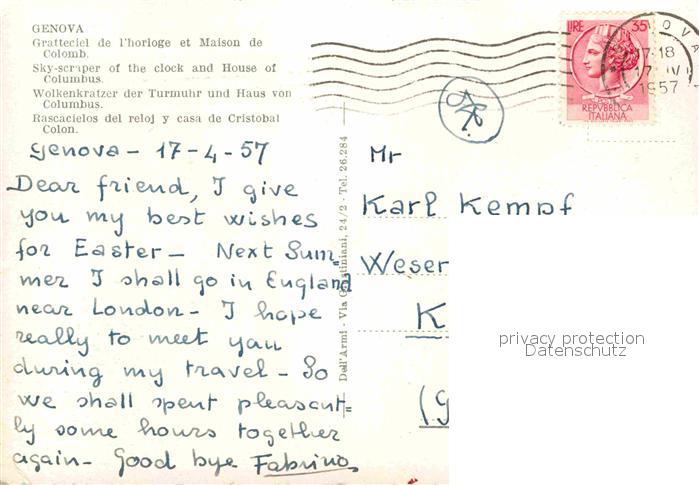 GENOVA
Gratteciel de l'horloge et Maison de
Colomb.
Sky-scraper of the clock and House of
Columbus.
Wolkenkratzer der Turmuhr und Haus von
Columbus.
Rascacielos del reloj y casa de Cristobal
Colon.
Genova - 17-4-57
Dear friend, I give
you my best wishes
for Easter - Next Sum=
mer I shall go in England
near London - I hope
really to meet you
during my travel - So
we shall spent pleasant=
ly some hours together
again - Good bye Fabrino
Dell'Armi - Via Giustiniani, 24/2 - Tel. 26.284
LIRE 35
REPVBBLICA
ITALIANA
17-18
IV
1957
Mr
Karl Kempf
Weser
K
(g
privacy protection
Datenschutz